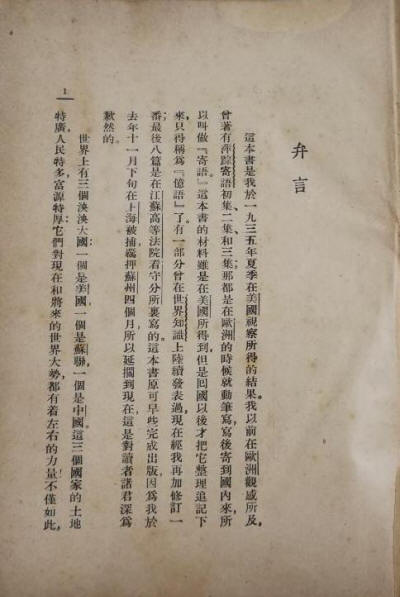 弁言
這本書是我於一九三五年夏季在美國視察所得的結果。我以前在歐洲觀感所及，
曾著有萍踪寄語初集、二集和三集；那都是在歐洲的時候就動筆寫，寫後寄到國內來，所
以叫做『寄語』。這本書的材料雖是在美國所得到，但是回國以後才把它整理追記下
來，只得稱爲『憶語』了。有一部分曾在世界知識上陸續發表過，現在經我再加修訂一
番；最後八篇是在江蘇高等法院看守分所裏寫的。這本書原可早些完成出版，因爲我於
去年十一月下旬在上海被捕，羈押蘇州四個月，所以延擱到現在，這是對讀者諸君深爲
歉然的。
世界上有三個泱泱大國：一個是美國，一個是蘇聯，一個是中國。這三個國家的土地
特廣，人民特多，富源特厚；它們對現在和將來的世界大勢，都有着左右的力量。不僅如此，
1